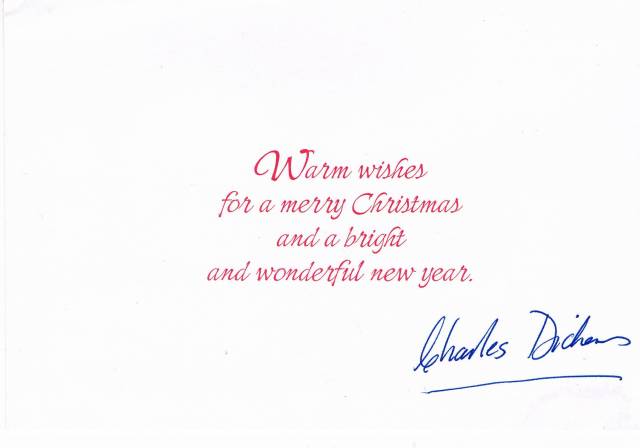 Warm wishes
for a merry Christmas
and a bright
and wonderful new year.
Charles Dickens